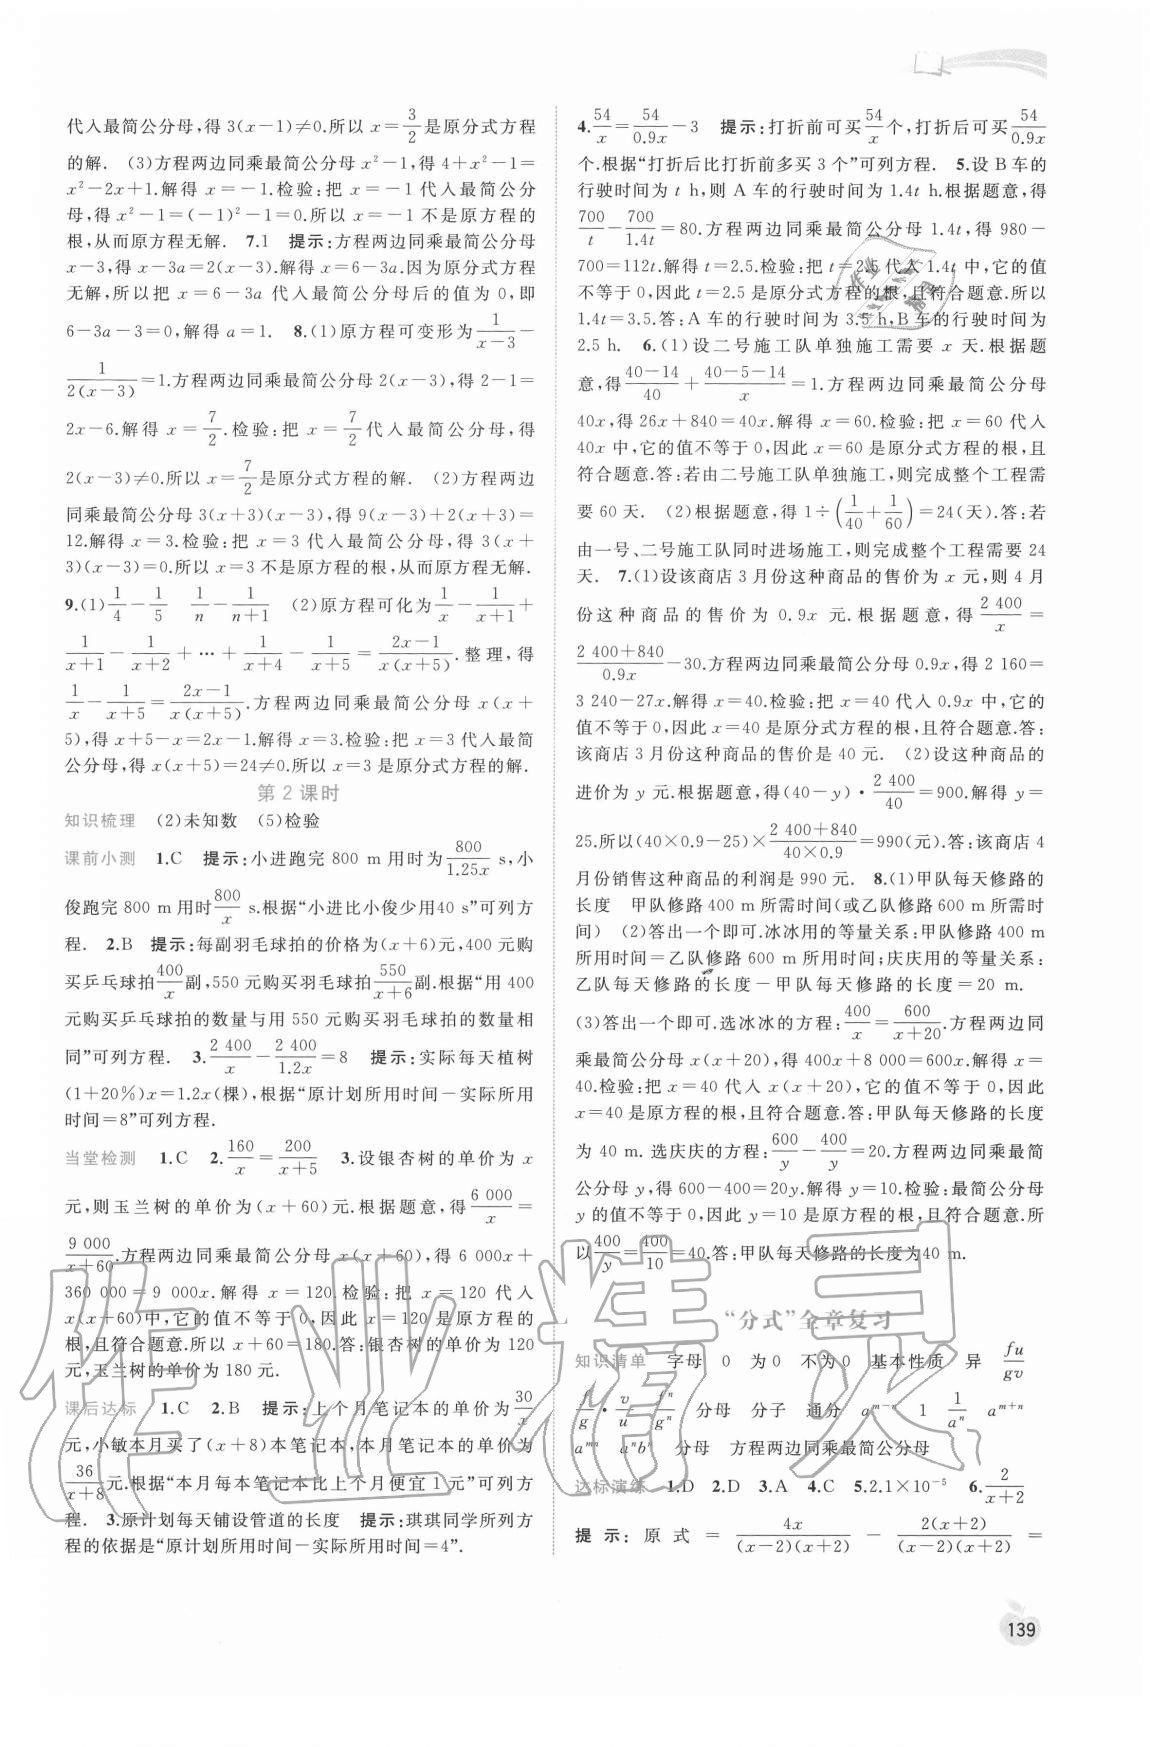 代入最简公分母,得 3(x-1)≠0.所以 x=3/2是原分式方程
的解. (3)方程两边同乘最简公分母 x²-1,得 4+x²-1=
x²-2x+1.解得 x=-1.检验:把 x=-1 代入最简公分
母,得 x²-1=(-1)²-1=0.所以 x=-1 不是原方程的
根,从而原方程无解. 7.1 提示:方程两边同乘最简公分母
x-3,得 x-3a=2(x-3).解得 x=6-3a.因为原分式方程
无解,所以把 x=6-3a 代入最简公分母后的值为 0,即
6-3a-3=0,解得 a=1. 8.(1)原方程可变形为1/(x-3)-
1/(2(x-3))=1.方程两边同乘最简公分母 2(x-3),得 2-1=
2x-6.解得 x=7/2.检验:把 x=7/2代入最简公分母,得
2(x-3)≠0.所以 x=7/2是原分式方程的解. (2)方程两边
同乘最简公分母 3(x+3)(x-3),得 9(x-3)+2(x+3)=
12.解得 x=3.检验:把 x=3 代入最简公分母,得 3(x+
3)(x-3)=0.所以 x=3 不是原方程的根,从而原方程无解.
9.(1)1/4-1/5 1/n-1/(n+1) (2)原方程可化为1/x-1/(x+1)+
1/(x+1)-1/(x+2)+…+1/(x+4)-1/(x+5)=(2x-1)/(x(x+5)).整理,得
1/x-1/(x+5)=(2x-1)/(x(x+5)).方程两边同乘最简公分母 x(x+
5),得 x+5-x=2x-1.解得 x=3.检验:把 x=3 代入最简
公分母,得 x(x+5)=24≠0.所以 x=3 是原分式方程的解.
第 2 课时
知识梳理 (2)未知数 (5)检验
课前小测 1.C 提示:小进跑完 800 m 用时为800/1.25x s,小
俊跑完 800 m 用时800/x s.根据“小进比小俊少用40 s”可列方
程. 2.B 提示:每副羽毛球拍的价格为(x+6)元,400 元购
买乒乓球拍400/x副,550 元购买羽毛球拍550/(x+6)副.根据“用 400
元购买乒乓球拍的数量与用 550 元购买羽毛球拍的数量相
同”可列方程. 3.2 400/x-2 400/1.2x=8 提示:实际每天植树
(1+20%)x=1.2x(棵),根据“原计划所用时间-实际所用
时间=8”可列方程.
当堂检测 1.C 2.160/x=200/(x+5) 3.设银杏树的单价为 x
元,则玉兰树的单价为(x+60)元.根据题意,得6 000/x=
9 000/(x+60).方程两边同乘最简公分母 x(x+60),得 6 000x+
360 000=9 000x.解得 x=120.检验:把 x=120 代入
x(x+60)中,它的值不等于 0,因此 x=120 是原方程的
根,且符合题意.所以 x+60=180.答:银杏树的单价为 120
元,玉兰树的单价为 180 元.
课后达标 1.C 2.B 提示:上个月笔记本的单价为30/x
元,小敏本月买了(x+8)本笔记本,本月笔记本的单价为
36/(x+8)元.根据“本月每本笔记本比上个月便宜 1 元”可列方
程. 3.原计划每天铺设管道的长度 提示:琪琪同学所列方
程的依据是“原计划所用时间-实际所用时间=4”.
4.54/x=54/0.9x-3 提示:打折前可买54/x个,打折后可买54/0.9x
个.根据“打折后比打折前多买 3 个”可列方程. 5.设 B 车的
行驶时间为 t h,则 A 车的行驶时间为 1.4t h.根据题意,得
700/t-700/1.4t=80.方程两边同乘最简公分母 1.4t,得 980-
700=112t.解得 t=2.5.检验:把 t=2.5 代入 1.4t 中,它的值
不等于 0,因此 t=2.5 是原分式方程的根,且符合题意.所以
1.4t=3.5.答:A 车的行驶时间为 3.5 h,B 车的行驶时间为
2.5 h. 6.(1)设二号施工队单独施工需要 x 天.根据题
意,得(40-14)/40+(40-5-14)/x=1.方程两边同乘最简公分母
40x,得 26x+840=40x.解得 x=60.检验:把 x=60 代入
40x 中,它的值不等于 0,因此 x=60 是原分式方程的根,且
符合题意.答:若由二号施工队单独施工,则完成整个工程需
要 60 天. (2)根据题意,得 1÷(1/40+1/60)=24(天).答:若
由一号、二号施工队同时进场施工,则完成整个工程需要 24
天. 7.(1)设该商店 3 月份这种商品的售价为 x 元,则 4 月
份这种商品的售价为 0.9x 元.根据题意,得2 400/x=
(2 400+840)/0.9x-30.方程两边同乘最简公分母 0.9x,得 2 160=
3 240-27x.解得 x=40.检验:把 x=40 代入 0.9x 中,它的
值不等于 0,因此 x=40 是原分式方程的根,且符合题意.答:
该商店 3 月份这种商品的售价是 40 元. (2)设这种商品的
进价为 y 元.根据题意,得(40-y)·2 400/40=900.解得 y=
25.所以(40×0.9-25)×(2 400+840)/(40×0.9)=990(元).答:该商店 4
月份销售这种商品的利润是 990 元. 8.(1)甲队每天修路的
长度 甲队修路 400 m 所需时间(或乙队修路 600 m 所需时
间) (2)答出一个即可.冰冰用的等量关系:甲队修路 400 m
所用时间=乙队修路 600 m 所用时间;庆庆用的等量关系:
乙队每天修路的长度-甲队每天修路的长度=20 m.
(3)答出一个即可.选冰冰的方程:400/x=600/(x+20).方程两边同
乘最简公分母 x(x+20),得 400x+8 000=600x.解得 x=
40.检验:把 x=40 代入 x(x+20),它的值不等于 0,因此
x=40 是原方程的根,且符合题意.答:甲队每天修路的长度
为 40 m. 选庆庆的方程:600/y-400/y=20.方程两边同乘最简
公分母 y,得 600-400=20y.解得 y=10.检验:最简公分母
y 的值不等于 0,因此 y=10 是原方程的根,且符合题意.所
以400/y=400/10=40.答:甲队每天修路的长度为40 m.
“分式”全章复习
知识清单 字母 0 为 0 不为 0 基本性质 异 fu/gv
f/g·v/u fⁿ/gⁿ 分母 分子 通分 aᵐ⁻ⁿ 1 1/aⁿ aᵐ⁺ⁿ
aᵐⁿ aⁿbⁿ 分母 方程两边同乘最简公分母
达标演练 1.D 2.D 3.A 4.C 5.2.1×10⁻⁵ 6.2/(x+2)
提示:原式=4x/((x-2)(x+2))-2(x+2)/((x-2)(x+2))=
139
作业精灵